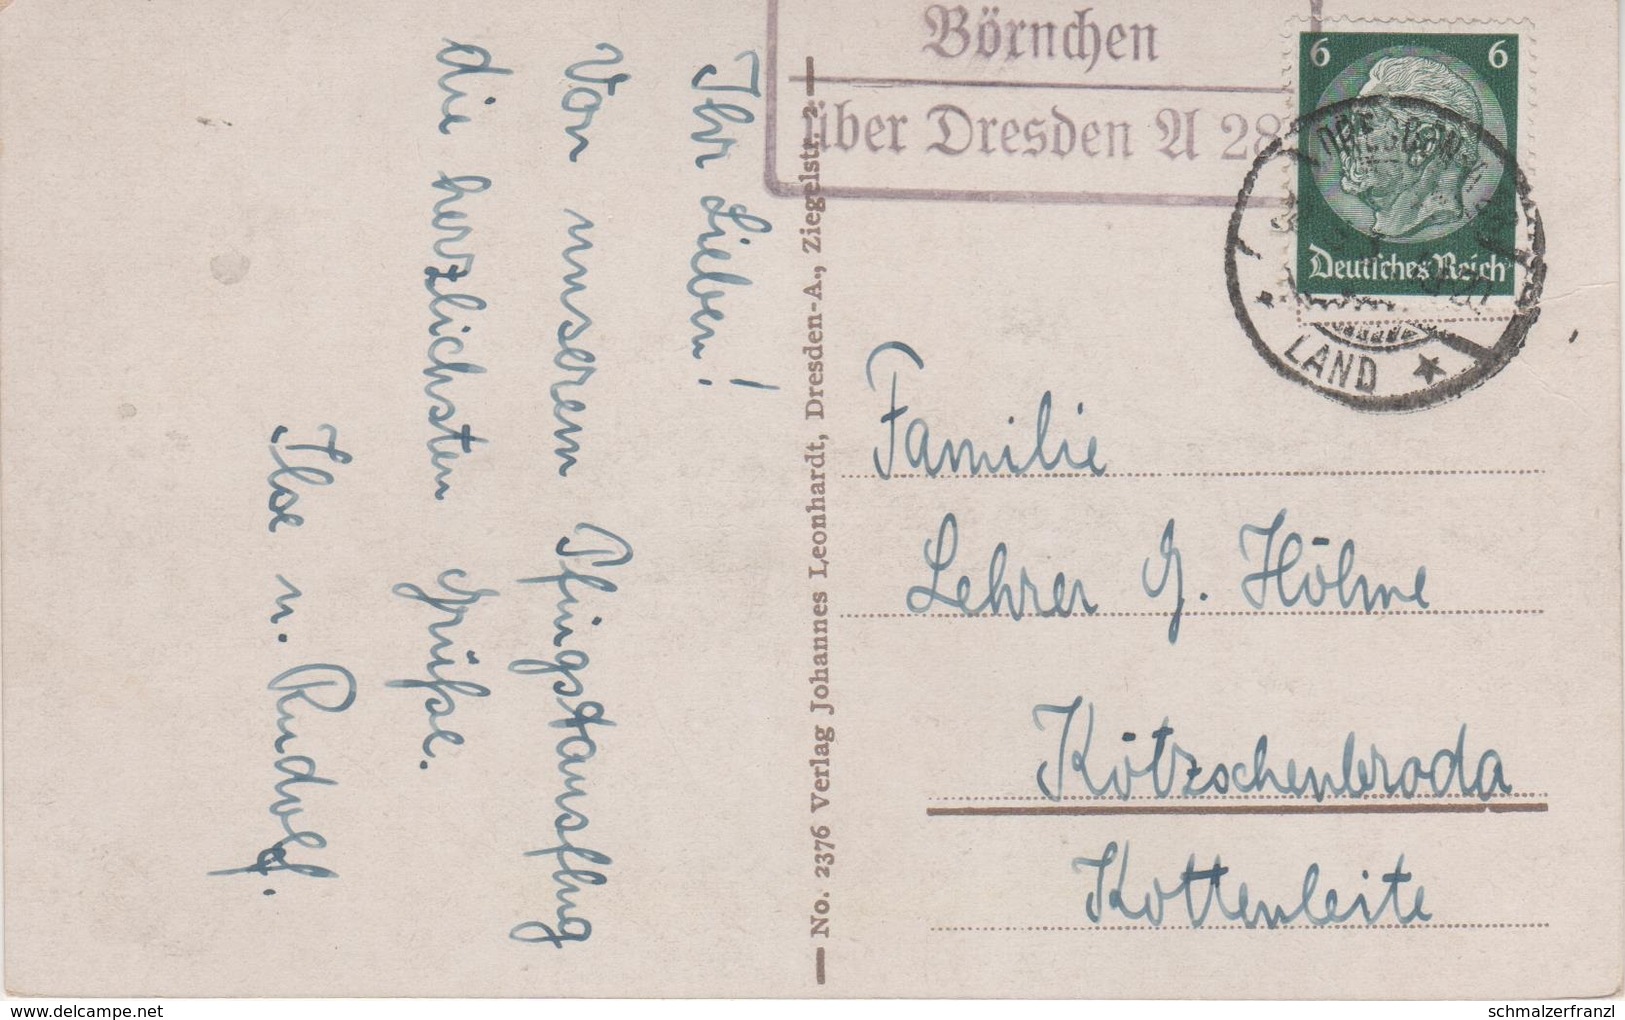 Börnchen
über Dresden A 28
6 6
Deutsches Reich
LAND
Ihr Lieben!
Von unserem Pfingstausflug
die herzlichsten Grüße.
Ilse u. Rudolf.
No. 2376 Verlag Johannes Leonhardt, Dresden-A., Ziegelstr. 2
Familie
Lehrer G. Höhne
Kötzschenbroda
Kottenleite
delcampe.net
schmalzerfranzl